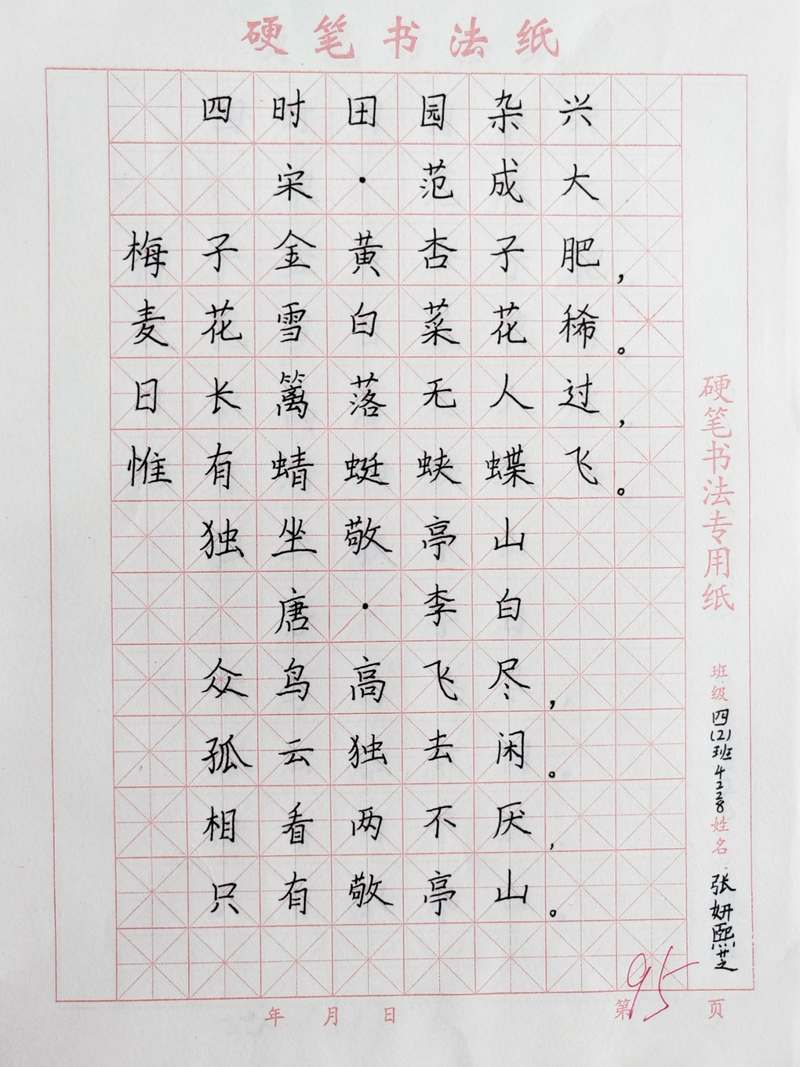 硬笔书法纸
四时田园杂兴
宋·范成大
梅子金黄杏子肥，
麦花雪白菜花稀。
日长篱落无人过，
惟有蜻蜓蛱蝶飞。
独坐敬亭山
唐·李白
众鸟高飞尽，
孤云独去闲。
相看两不厌，
只有敬亭山。
硬笔书法专用纸
班级 四(2)班 姓名 张妍熙芝
年 月 日
第 页
95